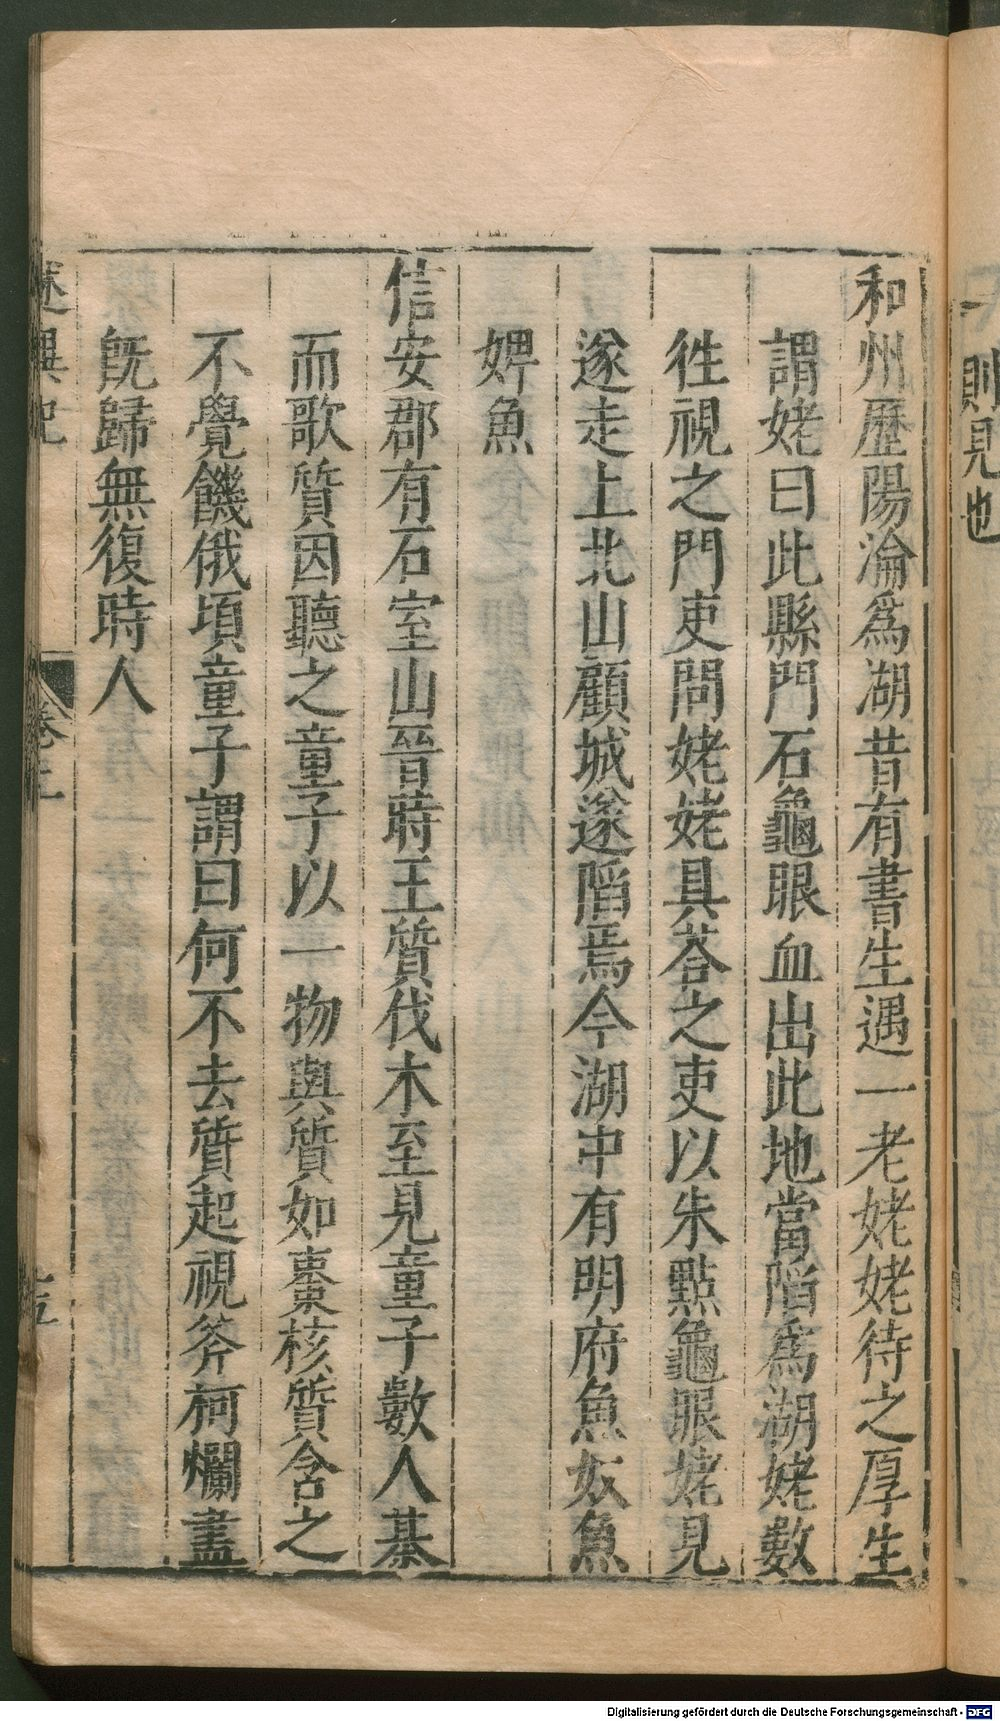 則見也
和州歷陽淪爲湖昔有書生遇一老姥姥待之厚生
謂姥曰此縣門石龜眼血出此地當陷爲湖姥數
徃視之門吏問姥姥具荅之吏以朱點龜眼姥見
遂走上北山顧城遂陷焉今湖中有明府魚奴魚
婢魚
信安郡有石室山晉時王質伐木至見童子數人棊
而歌質因聽之童子以一物與質如棗核質含之
不覺饑俄頃童子謂曰何不去質起視斧柯爛盡
旣歸無復時人
述異記 卷上
Digitalisierung gefördert durch die Deutsche Forschungsgemeinschaft - DFG